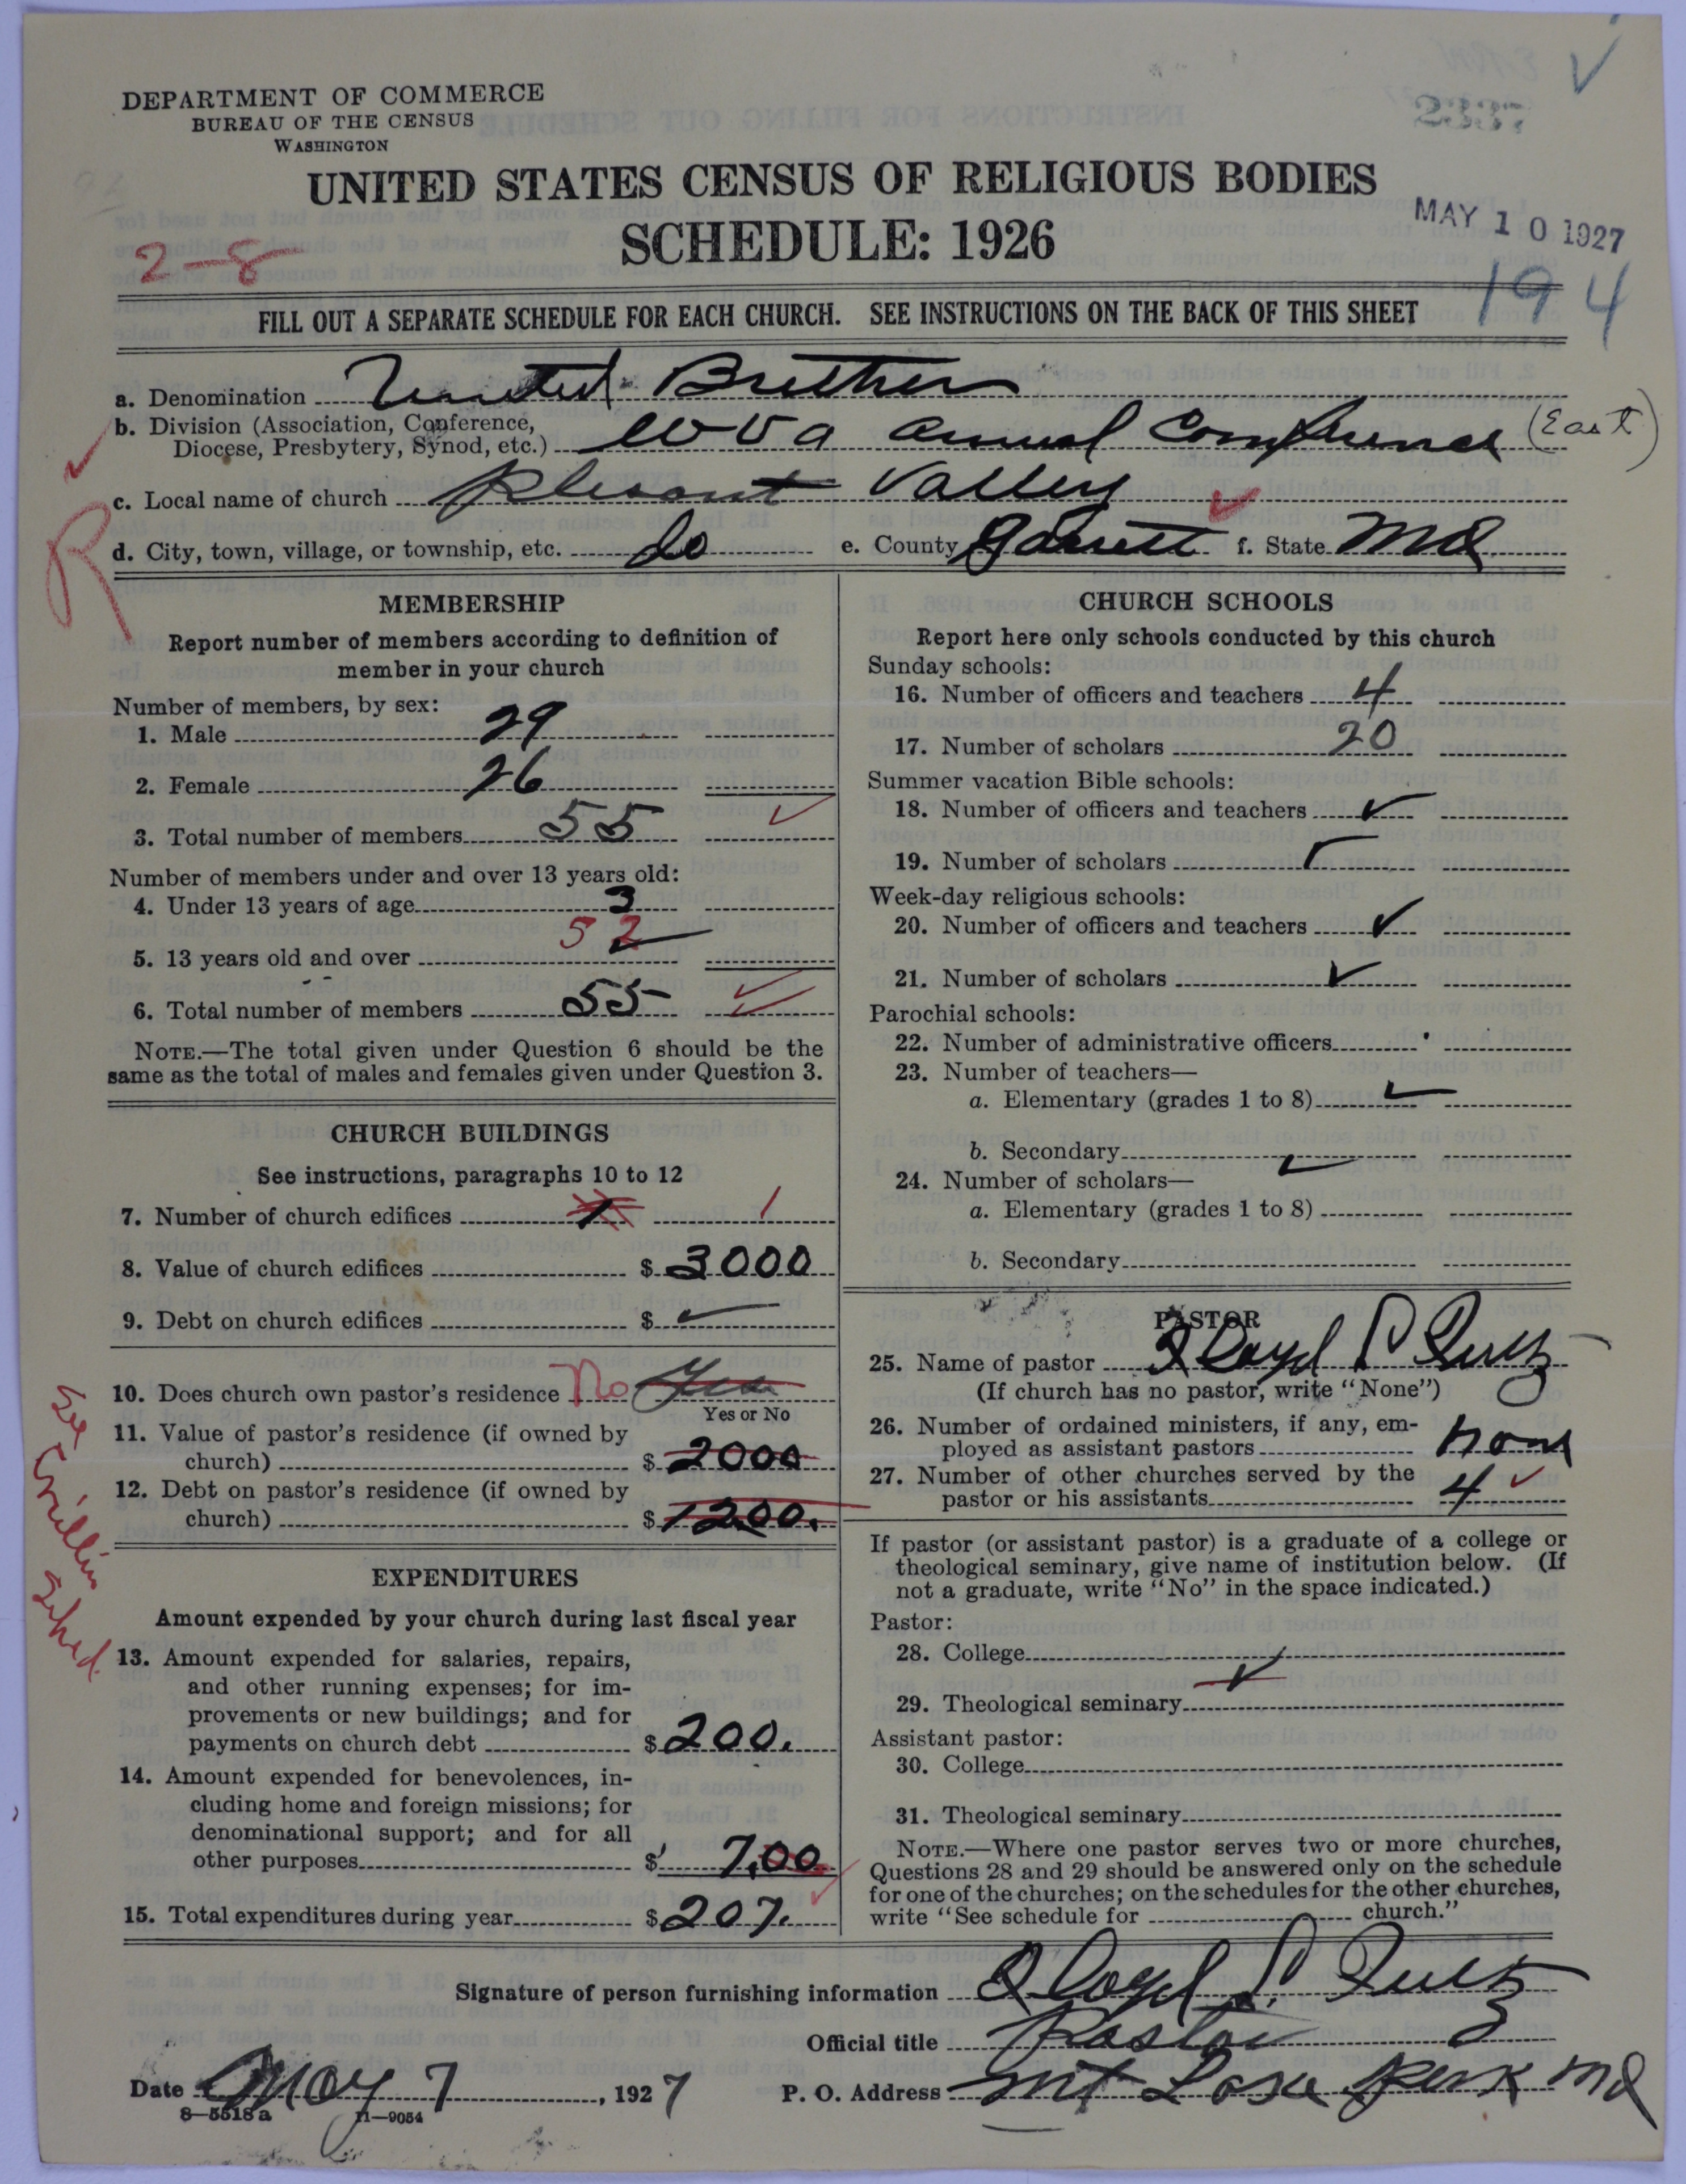 DEPARTMENT OF COMMERCE
BUREAU OF THE CENSUS
WASHINGTON
UNITED STATES CENSUS OF RELIGIOUS BODIES
SCHEDULE: 1926
MAY 10 1927
2-8
194
FILL OUT A SEPARATE SCHEDULE FOR EACH CHURCH. SEE INSTRUCTIONS ON THE BACK OF THIS SHEET
a. Denomination United Brethren
b. Division (Association, Conference, Diocese, Presbytery, Synod, etc.) W Va Annual Conference (East)
c. Local name of church Plesant Valley
d. City, town, village, or township, etc. do e. County Garrett f. State Md
R
MEMBERSHIP
Report number of members according to definition of
member in your church
Number of members, by sex:
1. Male 29
2. Female 26
3. Total number of members 55
Number of members under and over 13 years old:
4. Under 13 years of age 3
5. 13 years old and over 52
6. Total number of members 55
NOTE.—The total given under Question 6 should be the
same as the total of males and females given under Question 3.
CHURCH BUILDINGS
See instructions, paragraphs 10 to 12
7. Number of church edifices 1 1
8. Value of church edifices $ 3000
9. Debt on church edifices $
10. Does church own pastor's residence No Yes
Yes or No
11. Value of pastor's residence (if owned by
church) $ 2000
12. Debt on pastor's residence (if owned by
church) $ 1200.
See
Sched.
EXPENDITURES
Amount expended by your church during last fiscal year
13. Amount expended for salaries, repairs,
and other running expenses; for im-
provements or new buildings; and for
payments on church debt $ 200.
14. Amount expended for benevolences, in-
cluding home and foreign missions; for
denominational support; and for all
other purposes $ 7.00
15. Total expenditures during year $ 207.
CHURCH SCHOOLS
Report here only schools conducted by this church
Sunday schools:
16. Number of officers and teachers 4
17. Number of scholars 20
Summer vacation Bible schools:
18. Number of officers and teachers
19. Number of scholars
Week-day religious schools:
20. Number of officers and teachers
21. Number of scholars
Parochial schools:
22. Number of administrative officers
23. Number of teachers—
a. Elementary (grades 1 to 8)
b. Secondary
24. Number of scholars—
a. Elementary (grades 1 to 8)
b. Secondary
PASTOR
25. Name of pastor Lloyd S
(If church has no pastor, write "None")
26. Number of ordained ministers, if any, em-
ployed as assistant pastors none
27. Number of other churches served by the
pastor or his assistants 4
If pastor (or assistant pastor) is a graduate of a college or
theological seminary, give name of institution below. (If
not a graduate, write "No" in the space indicated.)
Pastor:
28. College
29. Theological seminary
Assistant pastor:
30. College
31. Theological seminary
NOTE.—Where one pastor serves two or more churches,
Questions 28 and 29 should be answered only on the schedule
for one of the churches; on the schedules for the other churches,
write "See schedule for church."
Signature of person furnishing information Lloyd S.
Official title Pastor
Date May 7, 1927 P. O. Address Mt Lake Park Md
8—5518 a 11—9054